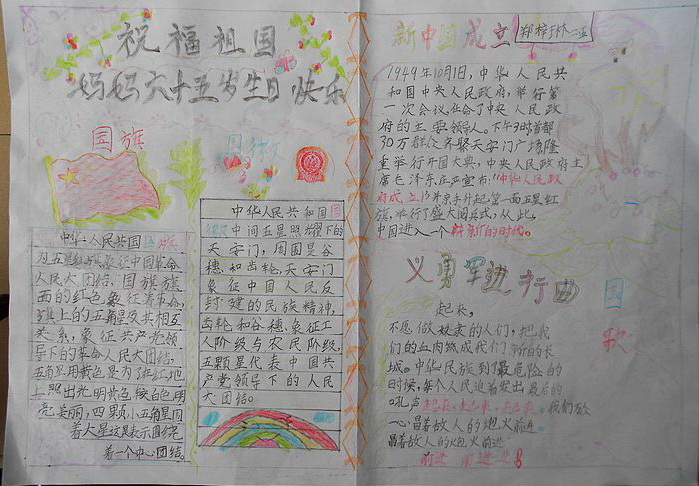 祝福祖国
妈妈六十五岁生日快乐
国旗
国徽
中华人民共国国旗
为五星红旗,象征中国革命
人民大团结,国旗旗
面的红色象征着革命,
旗上的五角星及其相互
关系,象征共产党领
导下的革命人民大团结,
五角星用黄色是为了在红地
上照出光明,黄色较白色明
亮美丽,四颗小五角星围
着大星这是表示围绕
着一个中心团结。
中华人民共和国国
徽 中间五星照耀下的
天安门,周围是谷
穗和齿轮,天安门
象征中国人民反
封建的民族精神,
齿轮和谷穗象征工
人阶级与农民阶级,
五颗星代表中国共
产党领导下的人民
大团结。
新中国成立
1949年10月1日,中华人民共
和国中央人民政府,举行第
一次会议,任命了中央人民政
府的主要领导人。下午3时首都
30万群众齐聚天安门广场隆
重举行开国大典,中央人民政府主
席毛泽东庄严宣布:"中华人民政
府成立"!并亲手升起第一面五星红
旗,举行了盛大阅兵式,从此,
中国进入一个崭新的时代。
义勇军进行曲
国
歌
起来,
不愿做奴隶的人们,把我
们的血肉城成我们新的长
城。中华民族到了最危险的
时候,每个人民迫着发出最后的
吼声 起来,起来,起来。我们放
一心,冒着敌人的炮火前进。
冒着敌人的炮火前进
前进 前进进!